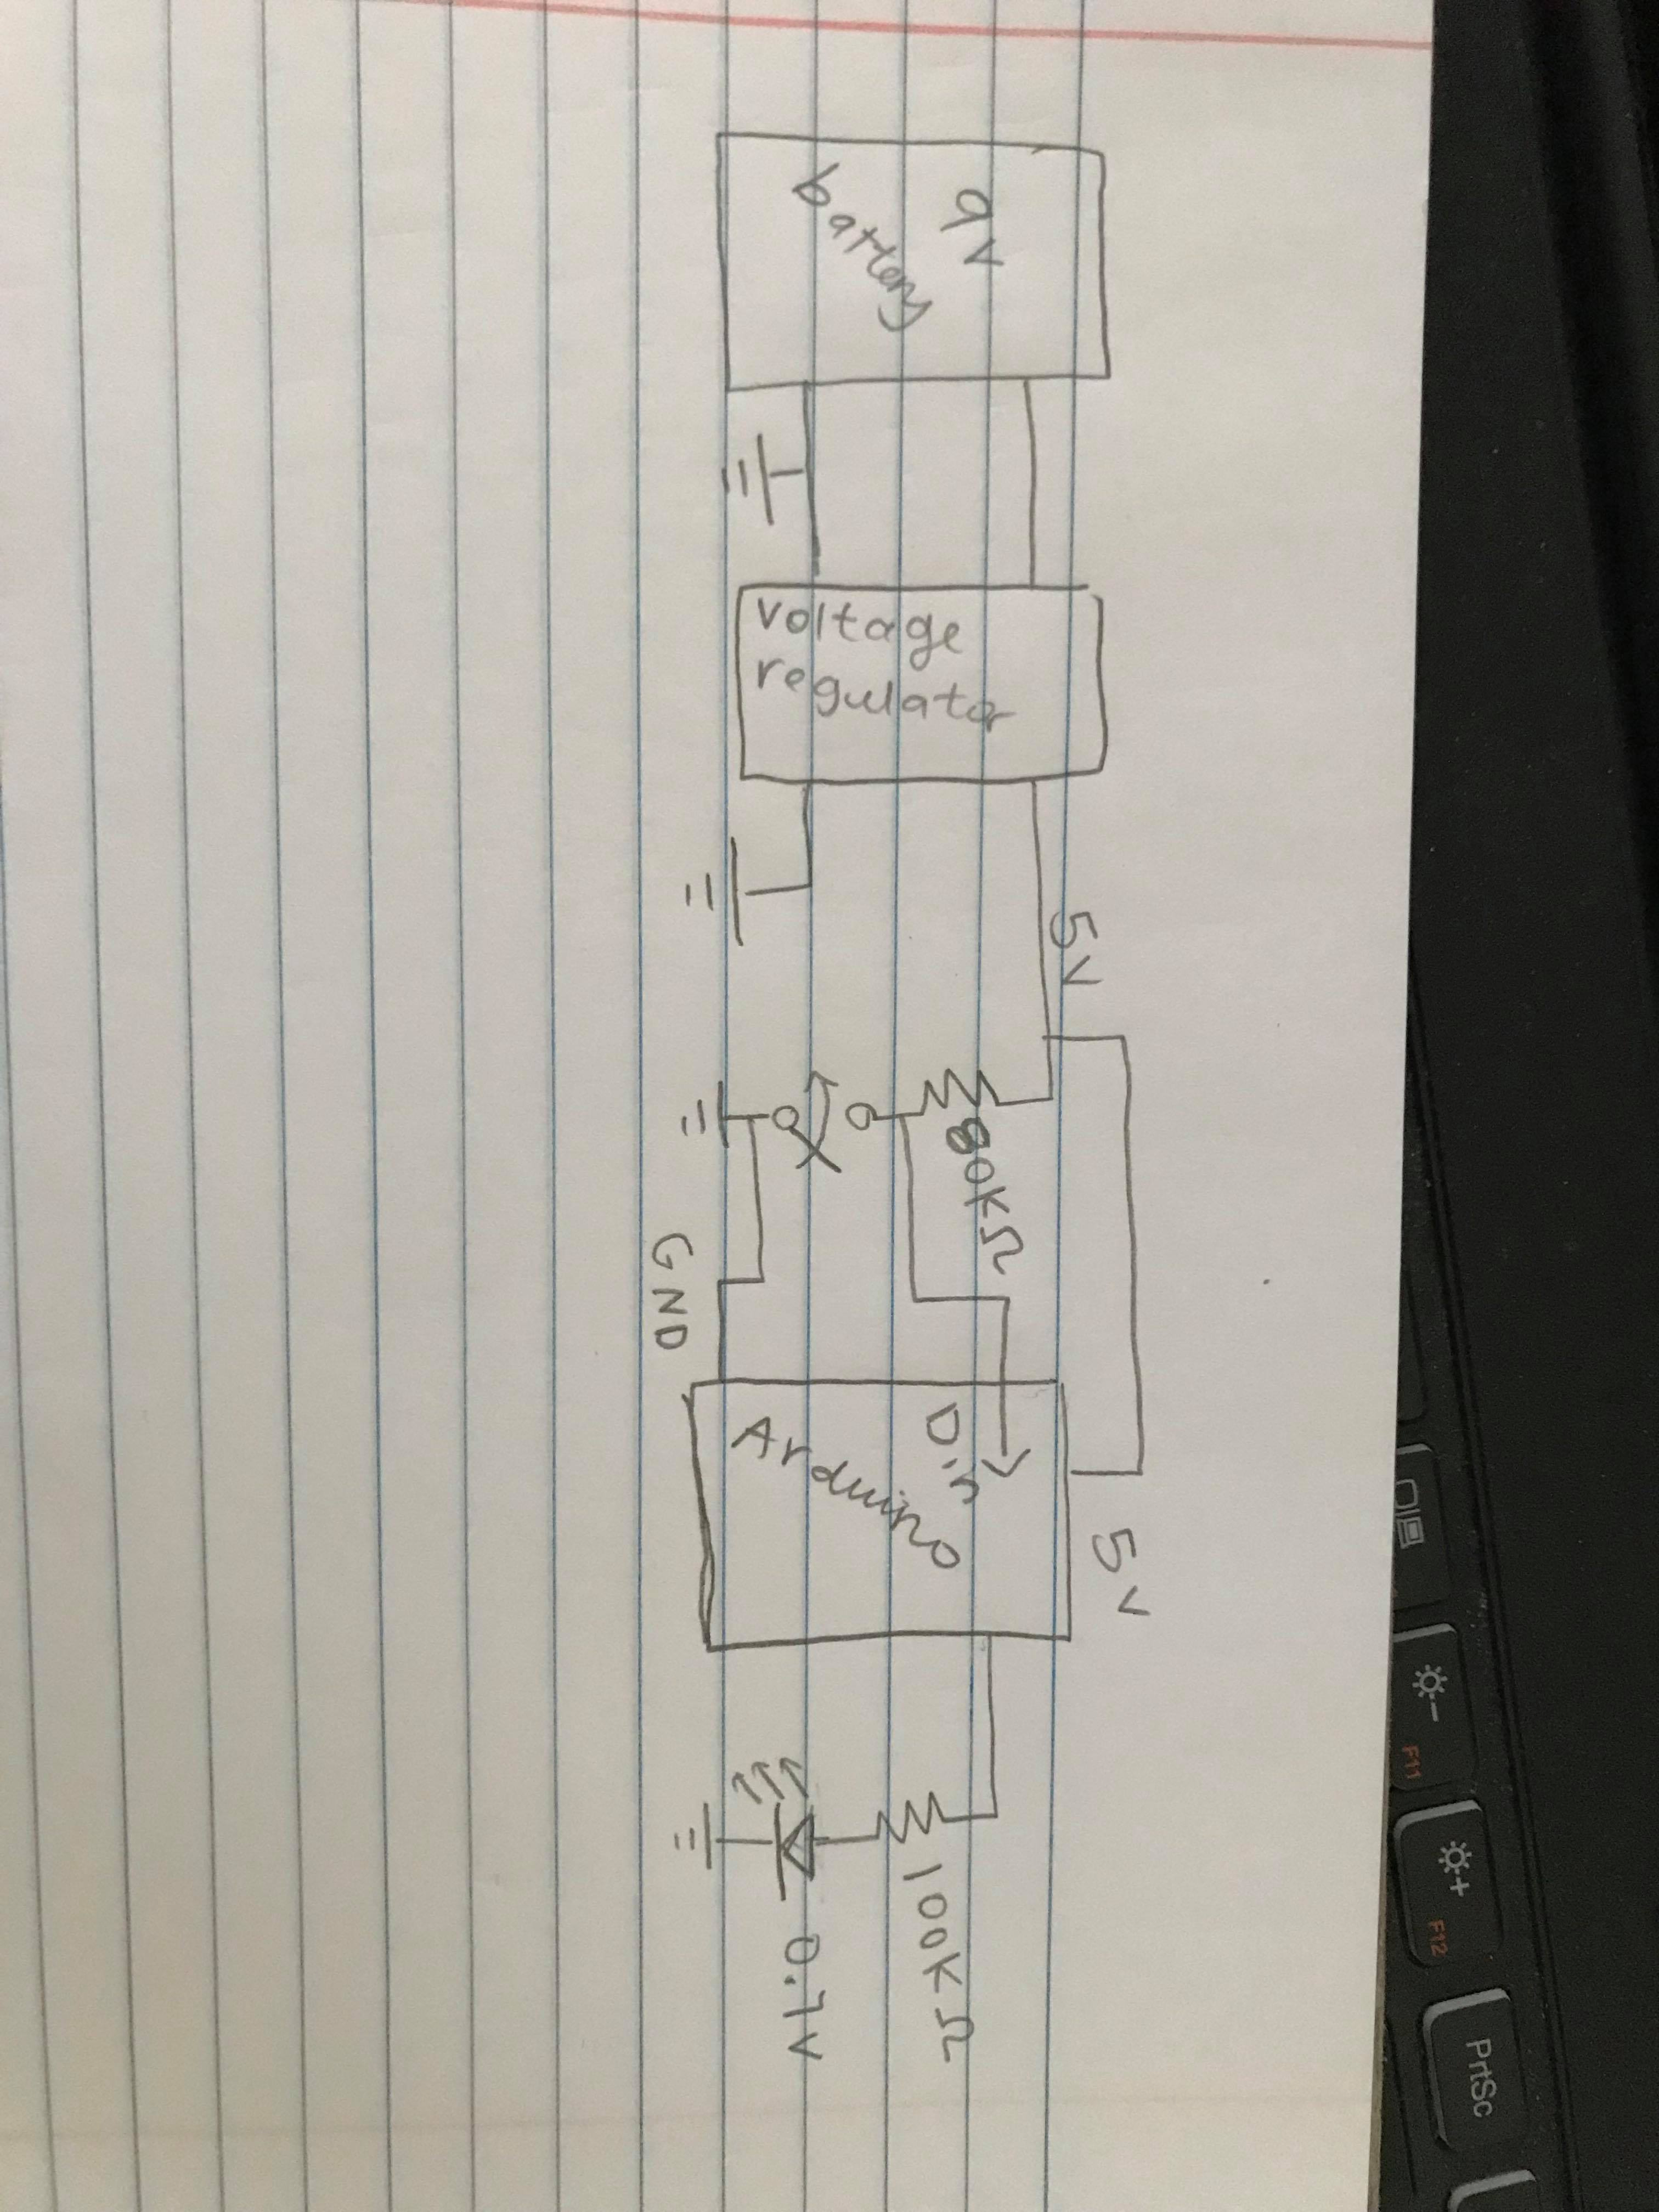 9v
battery
voltage
regulator
5V
80KΩ
GND
Din
Arduino
5V
100KΩ
0.7V
F11
F12
PrtSc